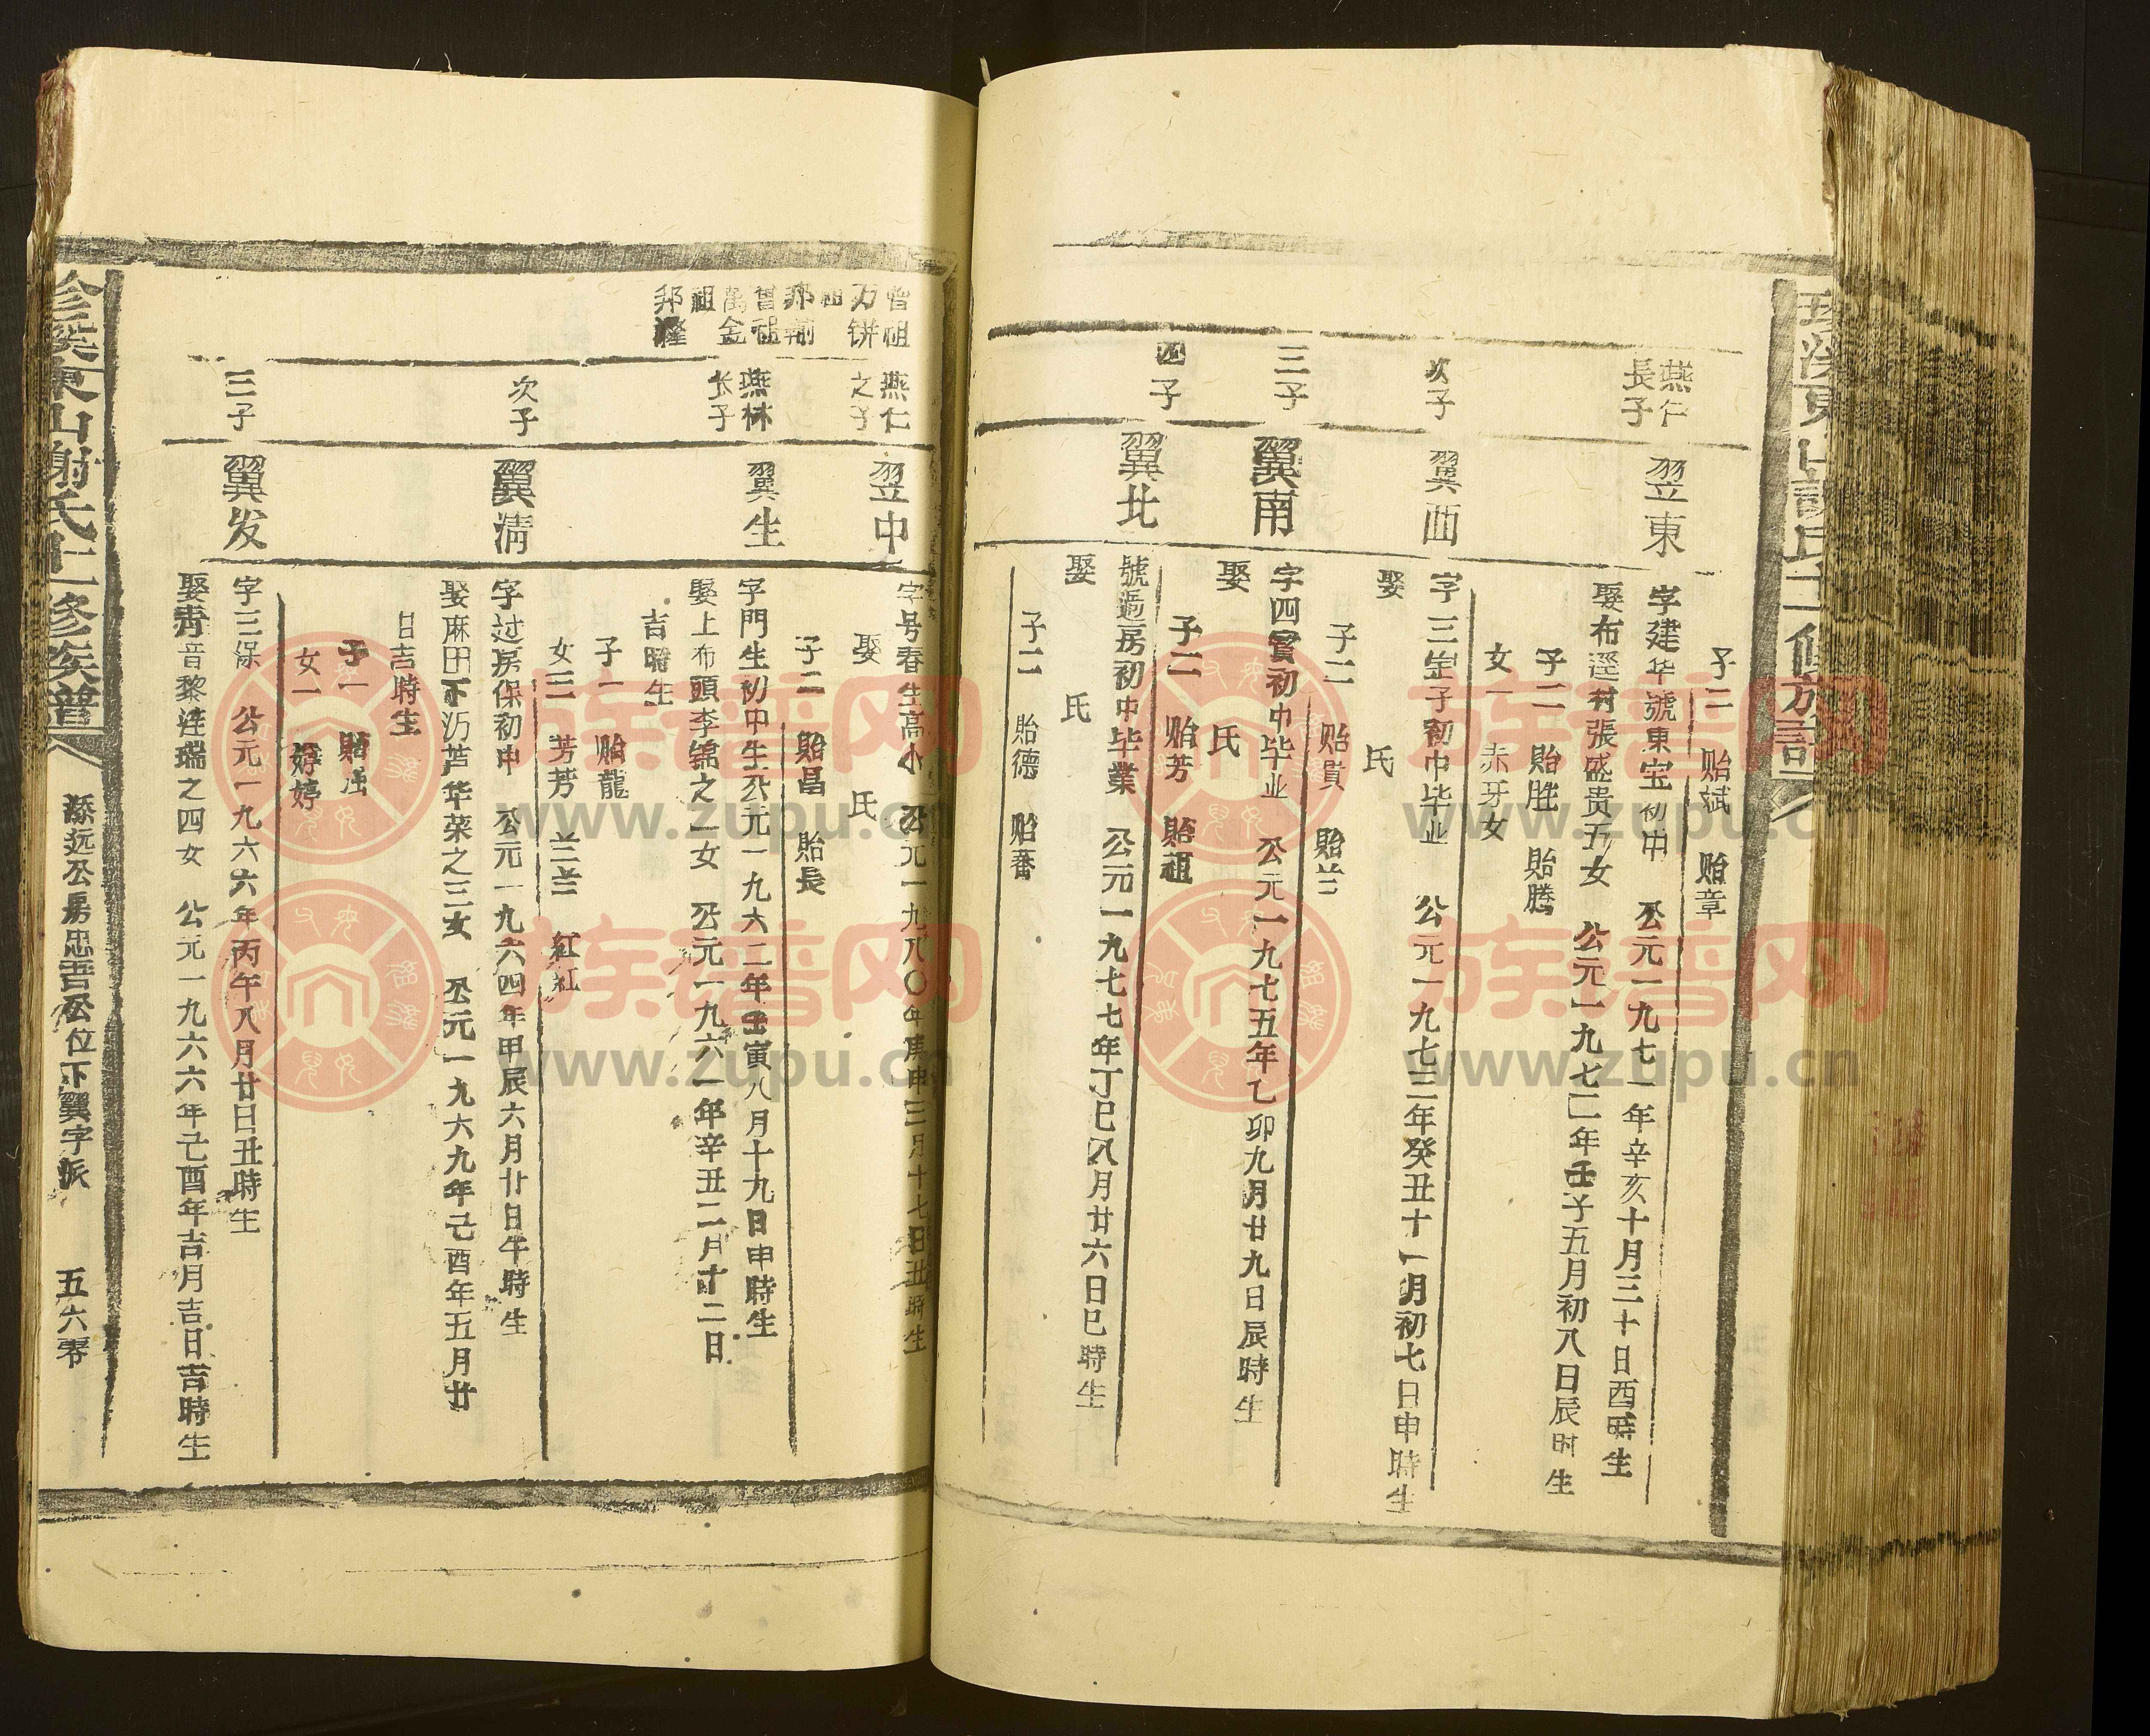 子二 贻斌 贻章
燕仁
長子
翌東
字建华號東宝初中 公元一九七一年辛亥十月三十日酉時生
娶布逕村張盛贵五女 公元一九七二年壬子五月初八日辰时生
子二 貽胜 貽腾
女一 赤牙女
次子
翼西
字三宝子初中毕业 公元一九七三年癸丑十一月初七日申時生
娶 氏
子二 贻貭 貽兰
三子
翼南
字四賓初中毕业 公元一九七五年乙卯九月廿九日辰時生
娶 氏
子二 贻芳 貽祖
四子
翼北
號過房初中毕業 公元一九七七年丁巳八月廿六日巳時生
娶 氏
子二 貽德 贻蕃
曾祖
万饼
祖
邦
曾祖
萬金
祖
邦隆
燕仁
之子
翌中
字号春生高小 公元一九八〇年庚申三月十七日丑時生
娶 氏
子二 貽昌 貽長
燕林
长子
翼生
字門生初中生公元一九六二年壬寅八月十九日申時生
娶上布頭李錦之一女 公元一九六一年辛丑二月廿二日
吉時生
子一 贻龍
女三 芳芳 兰兰 紅紅
次子
翼清
字过房保初中 公元一九六四年甲辰六月廿日午時生
娶麻田下沥芦华菜之三女 公元一九六九年己酉年五月廿
日吉時生
子一 貽
女一 婷婷
三子
翼发
字三保 公元一九六六年丙午八月廿日丑時生
娶青音黎洼瑞之四女 公元一九六六年己酉年吉月吉日吉時生
珍溪東山谢氏十一修族譜
添远公房忠吾公位下翼字派
五六零
族谱网
www.zupu.cn
族谱网
www.zupu.cn
族谱网
www.zupu.cn
族谱网
www.zupu.cn